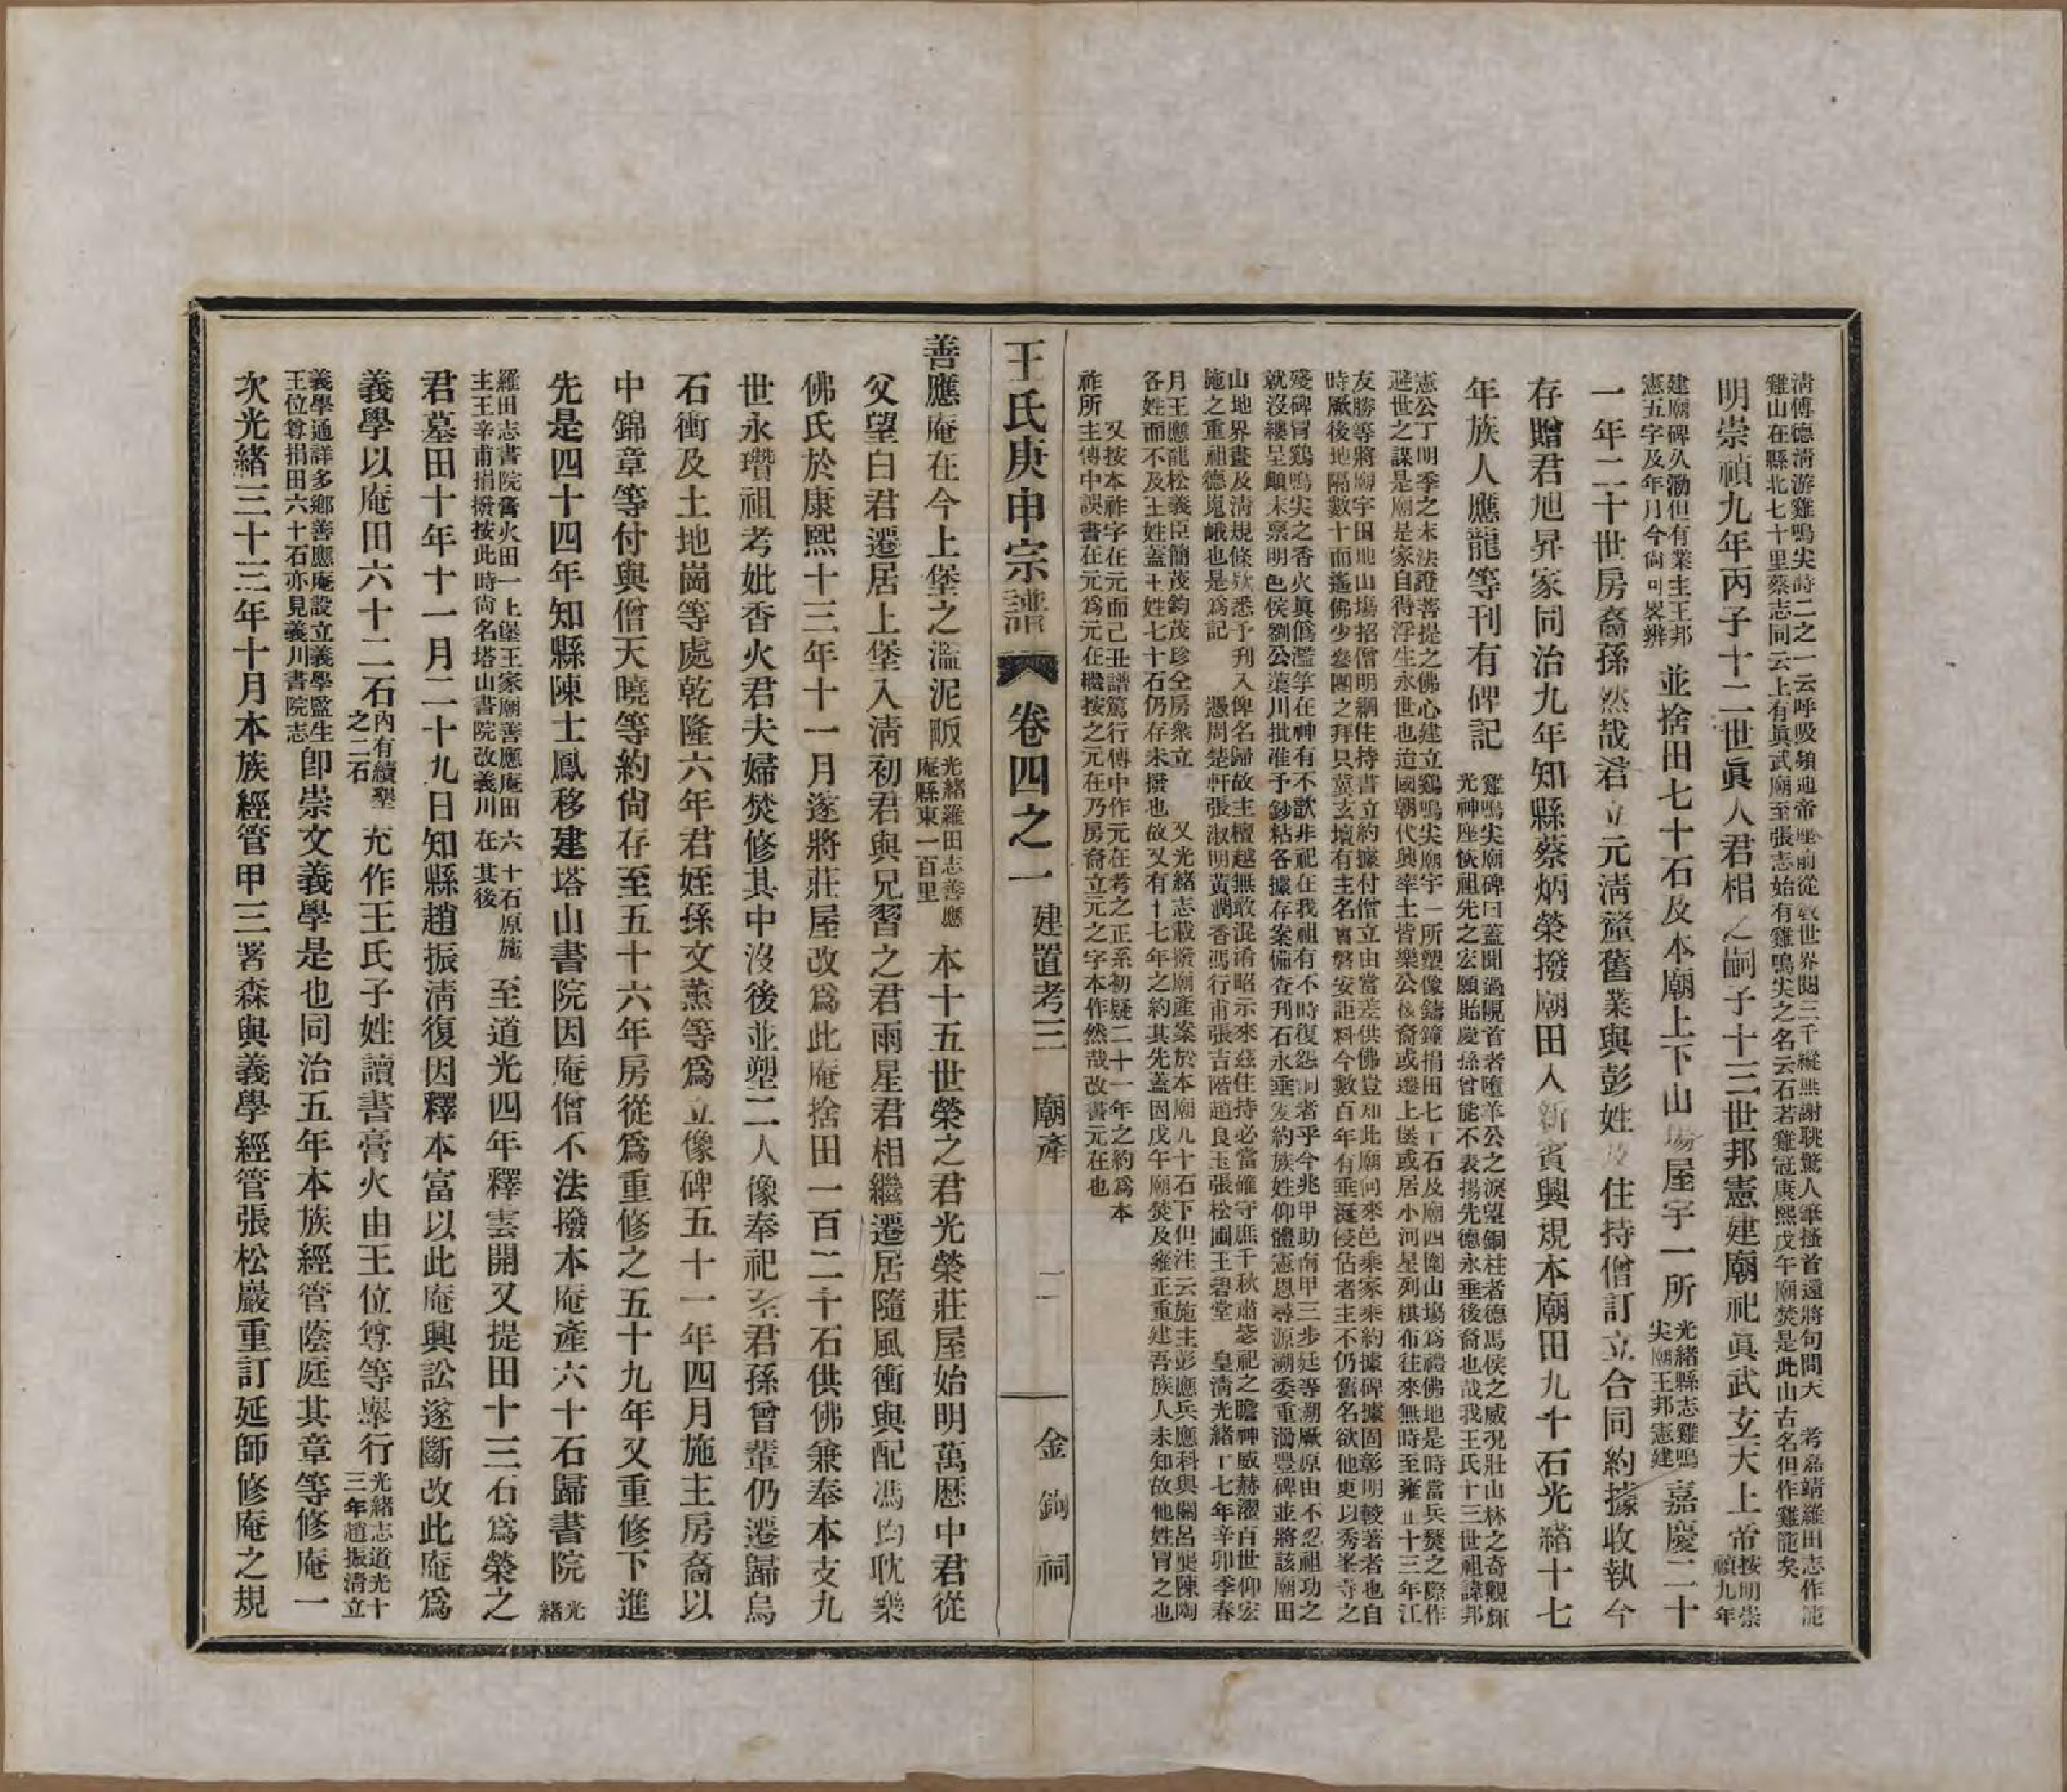 清傅德淸游雞鳴尖詩二之一云呼吸頻通帝座前從教世界閱三千縱無謝朓驚人筆搔首還將句問天　考嘉靖羅田志作龍
雞山在縣北七十里蔡志同云上有眞武廟至張志始有雞鳴尖之名云石若雞冠康熙戊午廟焚是此山古名但作雞籠矣
明崇禎九年丙子十二世眞人君相之嗣子十三世邦憲建廟祀眞武玄天上帝
按明崇
禎九年
建廟碑久泐但有業主王邦
憲五字及年月今尚可畧辨
並捨田七十石及本廟上下山場屋宇一所
光緒縣志雞鳴
尖廟王邦憲建
嘉慶二十
一年二十世房裔孫然哉君立元淸釐舊業與彭姓及住持僧訂立合同約據收執今
存贈君旭昇家同治九年知縣蔡炳榮撥廟田入新賓興規本廟田九十石光緒十七
年族人應龍等刊有碑記
雞鳴尖廟碑曰蓋聞過峴首者墮羊公之淚望銅柱者德馬侯之威況壯山林之奇觀輝
光神座恢祖先之宏願貽慶孫曾能不表揚先德永垂後裔也哉我王氏十三世祖諱邦
憲公丁明季之末法證菩提之佛心建立鷄鳴尖廟宇一所塑像鑄鐘捐田七十石及廟四圍山場爲禮佛地是時當兵燹之際作
避世之謀是廟是家自得浮生永世也迨國朝代興率土皆樂公後裔或遷上堡或居小河星列棋布往來無時至雍正十三年江
友勝等將廟宇田地山場招僧明綱住持書立約據付僧立由當差供佛豈知此廟向來邑乘家來約據碑據固彰明較著者也自
時厥後地隔數十而遙佛少叁團之拜只冀玄壇有主名實磐安詎料今數百年有垂涎侵佔者主不仍舊名欲他更以秀峯寺之
殘碑冒鷄鳴尖之香火眞僞濫竽在神有不歆非祀在我祖有不時復怨恫者乎今兆甲助南甲三步廷等溯厥原由不忍祖功之
就沒縷呈顚末禀明邑侯劉公葉川批准予鈔粘各據存案備查刊石永垂爰約族姓仰體憲恩尋源溯委重泐豐碑並將該廟田
山地界畫及淸規條欵悉予刊入俾名歸故主檀越無敢混淆昭示來茲住持必當確守庶千秋肅毖祀之瞻神威赫濯百世仰宏
施之重祖德嵬峨也是爲記　　憑周楚軒張淑明黃潤香馮行甫張吉階趙良玉張松圃王碧堂　皇淸光緒十七年辛卯季春
月王應龍松義臣簡茂鈞茂珍仝房衆立　　又光緒志載撥廟產案於本廟九十石下但注云施主彭應兵應科與關呂龔陳陶
各姓而不及王姓蓋王姓七十石仍存未撥也故又有十七年之約其先蓋因戊午廟焚及雍正重建吾族人未知故他姓冒之也
又按本祚字在元而己丑譜篤行傳中作元在考之正系初疑二十一年之約爲本
祚所主傳中誤書在元爲元在繼按之元在乃房裔立元之字本作然哉改書元在也
王氏庚申宗譜　卷四之一　建置考三　廟產　二　金鉤祠
善應庵在今上堡之濫泥畈
光緒羅田志善應
庵縣東一百里
本十五世榮之君光榮莊屋始明萬曆中君從
父望白君遷居上堡入淸初君與兄習之君雨星君相繼遷居隨風衝與配馮均耽樂
佛氏於康熙十三年十一月遂將莊屋改爲此庵捨田一百二十石供佛兼奉本支九
世永瓚祖考妣香火君夫婦焚修其中沒後並塑二人像奉祀至君孫曾輩仍遷歸烏
石衝及土地崗等處乾隆六年君姪孫文薰等爲立像碑五十一年四月施主房裔以
中錦章等付與僧天曉等約尙存至五十六年房從爲重修之五十九年又重修下進
先是四十四年知縣陳士鳳移建塔山書院因庵僧不法撥本庵產六十石歸書院
光
緒
羅田志書院膏火田一上堡王家廟善應庵田六十石原施
主王辛甫捐撥按此時尙名塔山書院改義川在其後
至道光四年釋雲開又提田十三石爲榮之
君墓田十年十一月二十九日知縣趙振淸復因釋本富以此庵興訟遂斷改此庵爲
義學以庵田六十二石
內有續墾
之二石
充作王氏子姓讀書膏火由王位尊等舉行
光緒志道光十
三年趙振淸立
義學通詳多鄉善應庵設立義學監生
王位尊捐田六十石亦見義川書院志
卽崇文義學是也同治五年本族經管蔭庭其章等修庵一
次光緒三十三年十月本族經管甲三署森與義學經管張松嚴重訂延師修庵之規